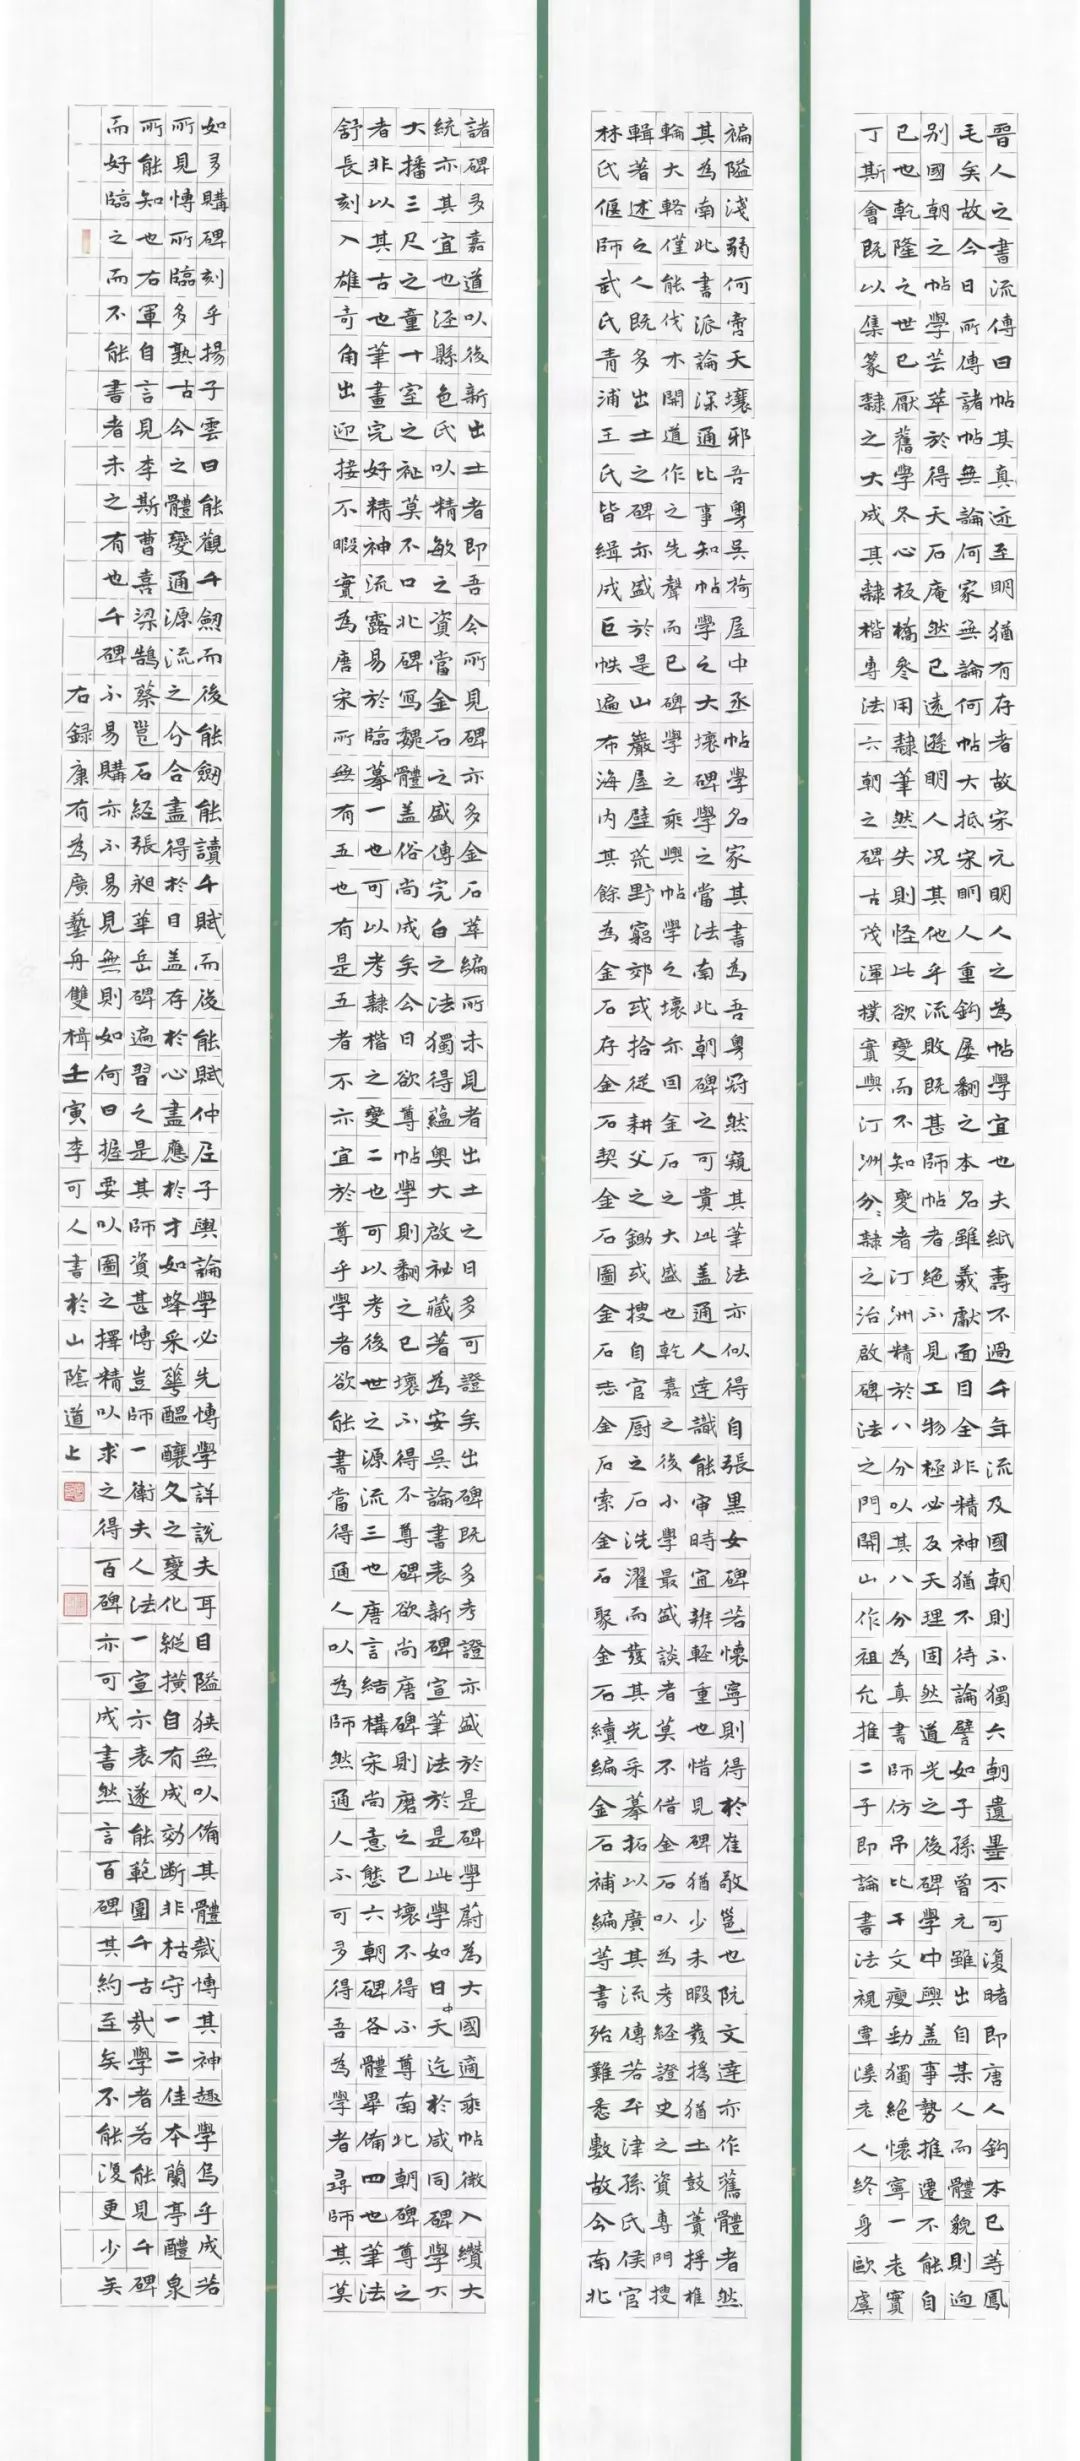 晉人之書流傳曰帖其真迹至明猶有存者故宋元明人之為帖學宜也夫紙壽不過千年流及國朝則不獨六朝遺墨不可復睹即唐人鈎本已等鳳
毛矣故今日所傳諸帖無論何家無論何帖大抵宋明人重鈎屡翻之本名雖羲獻面目全非精神猶不待論譬如子孫曾元雖出自某人而體貌則迥
别國朝之帖學芸萃於得天石庵然已遠遜明人况其他乎流敗既甚師帖者絶不見工物極必反天理固然道光之後碑學中興盖事勢推遷不能自
已也乾隆之世已厭舊學冬心板橋参用隸筆然失則怪此欲變而不知變者汀洲精於八分以其八分為真書師仿吊比干文瘦勁獨絶懷寧一老實
丁斯會既以集篆隸之大成其隸楷專法六朝之碑古茂渾樸實與汀洲分隸之治啟碑法之門開山作祖允推二子即論書法視覃溪老人終身歐虞
褊隘淺弱何啻天壤邪吾粵吳荷屋中丞帖學名家其書為吾粵冠然窺其筆法亦似得自張黑女碑若懷寧則得於崔敬邕也阮文達亦作舊體者然
其為南北書派論深通比事知帖學之大壞碑學之當法南北朝碑之可貴此盖通人達識能审時宜辨輕重也惜見碑猶少未暇發撝猶土鼓蕢桴椎
輪大輅僅能伐木開道作之先聲而已碑學之乘興帖學之壞亦因金石之大盛也乾嘉之後小學最盛談者莫不借金石以為考經證史之資專門搜
輯著述之人既多出土之碑亦盛於是山巖屋壁荒野窮郊或拾從耕父之鋤或搜自官厨之石洗濯而發其光采摹拓以廣其流傳若平津孫氏侯官
林氏偃師武氏青浦王氏皆緝成巨帙遍布海内其餘為金石存金石契金石圖金石志金石索金石聚金石續編金石補編等書殆難悉數故今南北
諸碑多嘉道以後新出土者即吾今所見碑亦多金石萃編所未見者出土之日多可證矣出碑既多考證亦盛於是碑學蔚為大國適乘帖微入纘大
統亦其宜也涇縣包氏以精敏之資當金石之盛傳完白之法獨得蘊奥大啟祕藏著為安吳論書表新碑宣筆法於是此學如日中天迄於咸同碑學大
大播三尺之童十室之社莫不口北碑寫魏體盖俗尚成矣今日欲尊帖學則翻之已壞不得不尊碑欲尚唐碑則磨之已壞不得不尊南北朝碑尊之
者非以其古也筆畫完好精神流露易於臨摹一也可以考隸楷之變二也可以考後世之源流三也唐言結構宋尚意態六朝碑各體畢備四也筆法
舒長刻入雄奇角出迎接不暇實為唐宋所無有五也有是五者不亦宜於尊乎學者欲能書當得通人以為師然通人不可多得吾為學者尋師其莫
如多購碑刻乎揚子雲曰能觀千劒而後能劒能讀千賦而後能賦仲尼子輿論學必先博學詳說夫耳目隘狹無以備其體裁博其神趣學烏乎成若
所見博所臨多熟古今之體變通源流之分合盡得於日盖存於心盡應於才如蜂采華醖釀久之變化縱橫自有成効斷非枯守一二佳本蘭亭醴泉
所能知也右軍自言見李斯曹喜梁鵠蔡邕石經張昶華岳碑遍習之是其師資甚博豈師一衛夫人法一宣示表遂能範圍千古哉學者若能見千碑
而好臨之而不能書者未之有也千碑不易購亦不易見無則如何曰握要以圖之擇精以求之得百碑亦可成書然言百碑其約至矣不能復更少矣
右録康有為廣藝舟雙楫壬寅李可人書於山陰道上